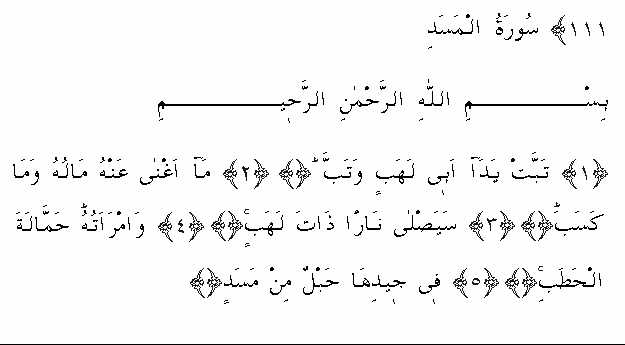 ١١١﴾ سُورَةُ الْمَسَدِ
بِسْــــــــــمِ اللّٰهِ الرَّحْمٰنِ الرَّحٖيــــــــــمِ
﴿١﴾ تَبَّتْ يَدَٓا اَبٖى لَهَبٍ وَتَبَّۜ﴿﴾ ﴿٢﴾ مَٓا اَغْنٰى عَنْهُ مَالُهُ وَمَا
كَسَبَۜ﴿﴾ ﴿٣﴾ سَيَصْلٰى نَارًا ذَاتَ لَهَبٍۚ﴿﴾ ﴿٤﴾ وَامْرَاَتُهُۜ حَمَّالَةَ
الْحَطَبِۚ﴿﴾ ﴿٥﴾ فٖى جٖيدِهَا حَبْلٌ مِنْ مَسَدٍ﴿﴾